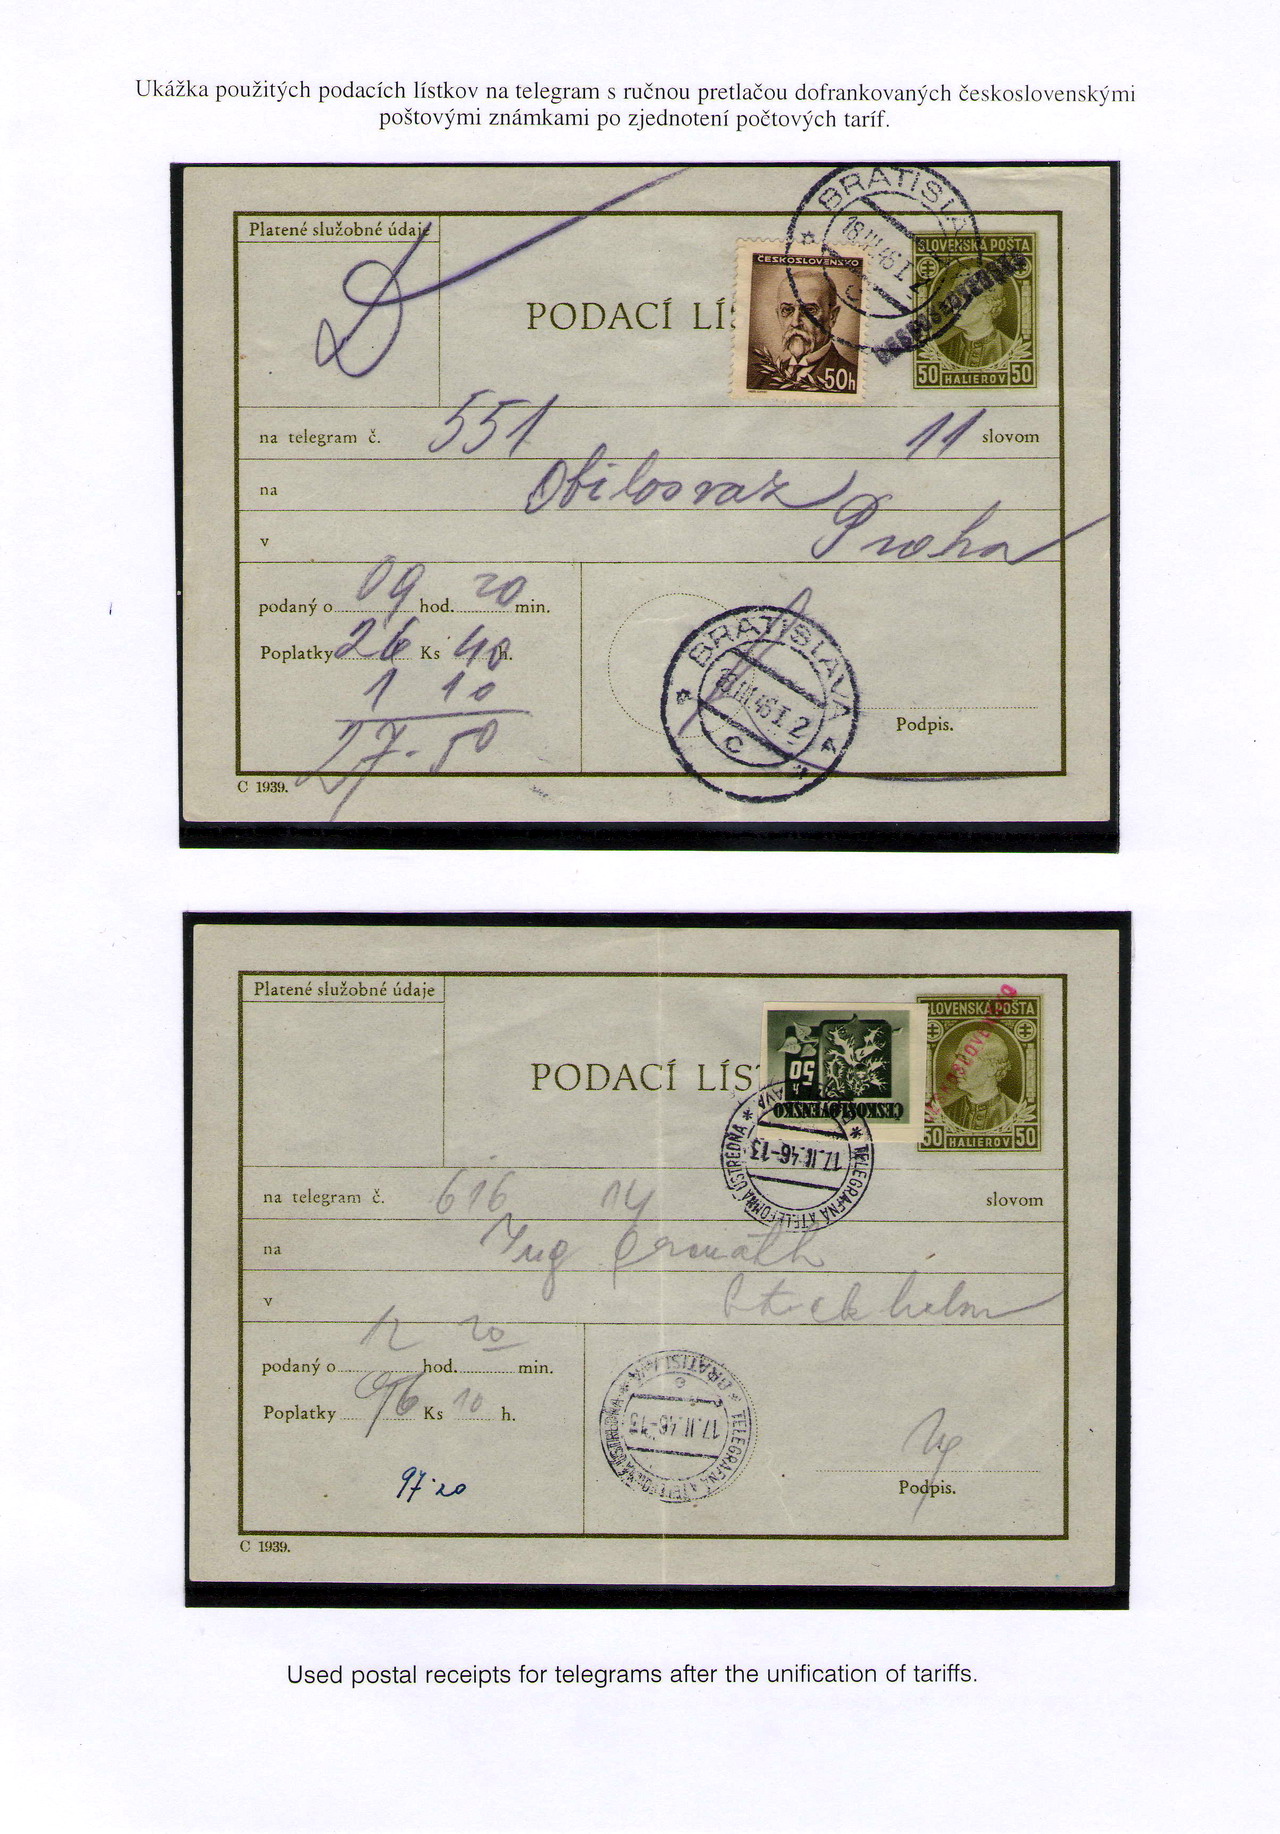 Ukážka použitých podacích lístkov na telegram s ručnou pretlačou dofrankovaných československými
poštovými známkami po zjednotení počtových taríf.
Platené služobné údaje
D
PODACÍ LÍS
ČESKOSLOVENSKO
50h
BRATISLA
18.III.46 I 2
C
SLOVENSKÁ POŠTA
ČESKOSLOVENSKO
50 HALIEROV 50
na telegram č. 551 11 slovom
na Obilosvaz
v Praha
podaný o 09 hod. 20 min.
Poplatky 26 Ks 40 h.
1 10
27.50
BRATISLAVA
18.III.46 I 2
C
4
Podpis.
C 1939.
Platené služobné údaje
PODACÍ LÍS
50
ČESKOSLOVENSKO
TELEGRAFNÁ A TELEFONNÁ ÚSTREDŇA
17.II.46-13
SLOVENSKÁ POŠTA
ČESKOSLOVENSKO
50 HALIEROV 50
na telegram č. 616 14 slovom
na Ing
v Stockholm
podaný o 12 hod. 20 min.
Poplatky 96 Ks 10 h.
97.20
BRATISLAVA
e
TELEGRAFNÁ A TELEFONNÁ ÚSTREDŇA
17.II.46-13
Podpis.
C 1939.
Used postal receipts for telegrams after the unification of tariffs.